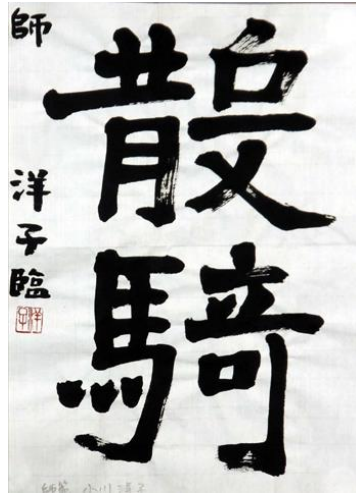 散騎
師 洋子臨
洋子
小川洋子